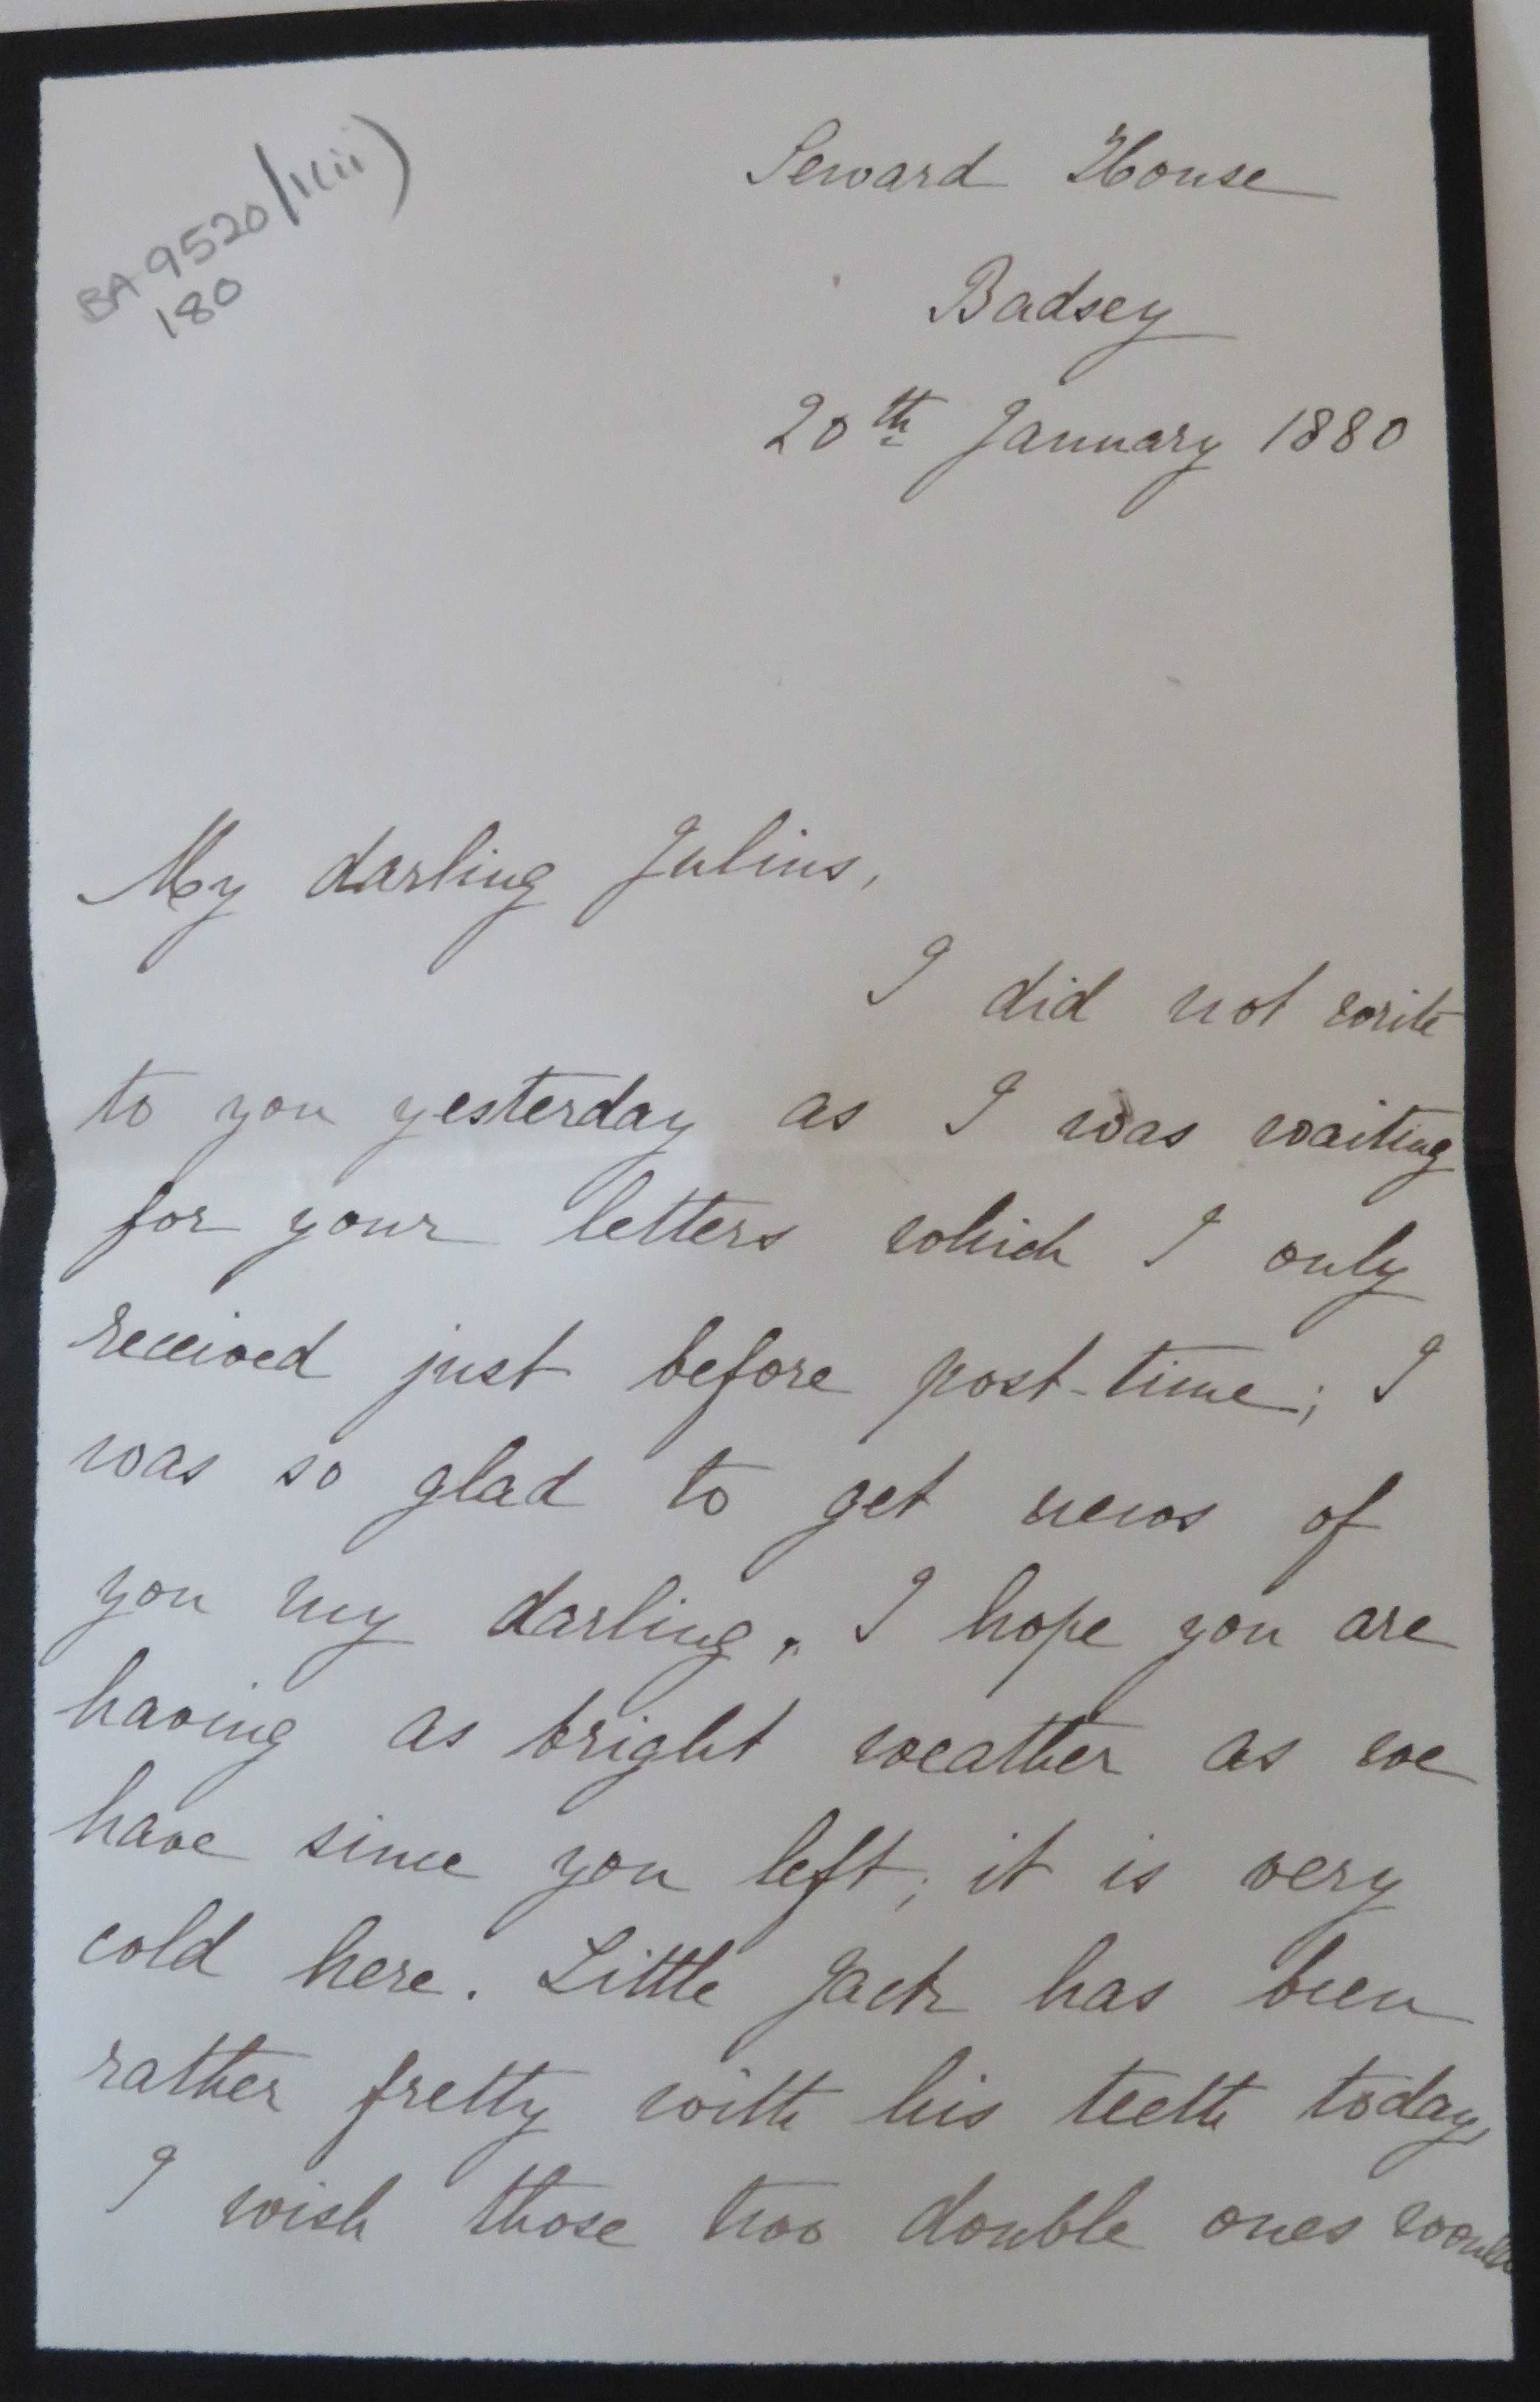 BA 9520/1(ii)
180
Seward House
Badsey
20th January 1880
My darling Julius,
I did not write
to you yesterday as I was waiting
for your letters which I only
received just before post-time; I
was so glad to get news of
you my darling. I hope you are
having as bright weather as we
have since you left; it is very
cold here. Little Jack has been
rather fretty with his teeth today,
I wish those two double ones would